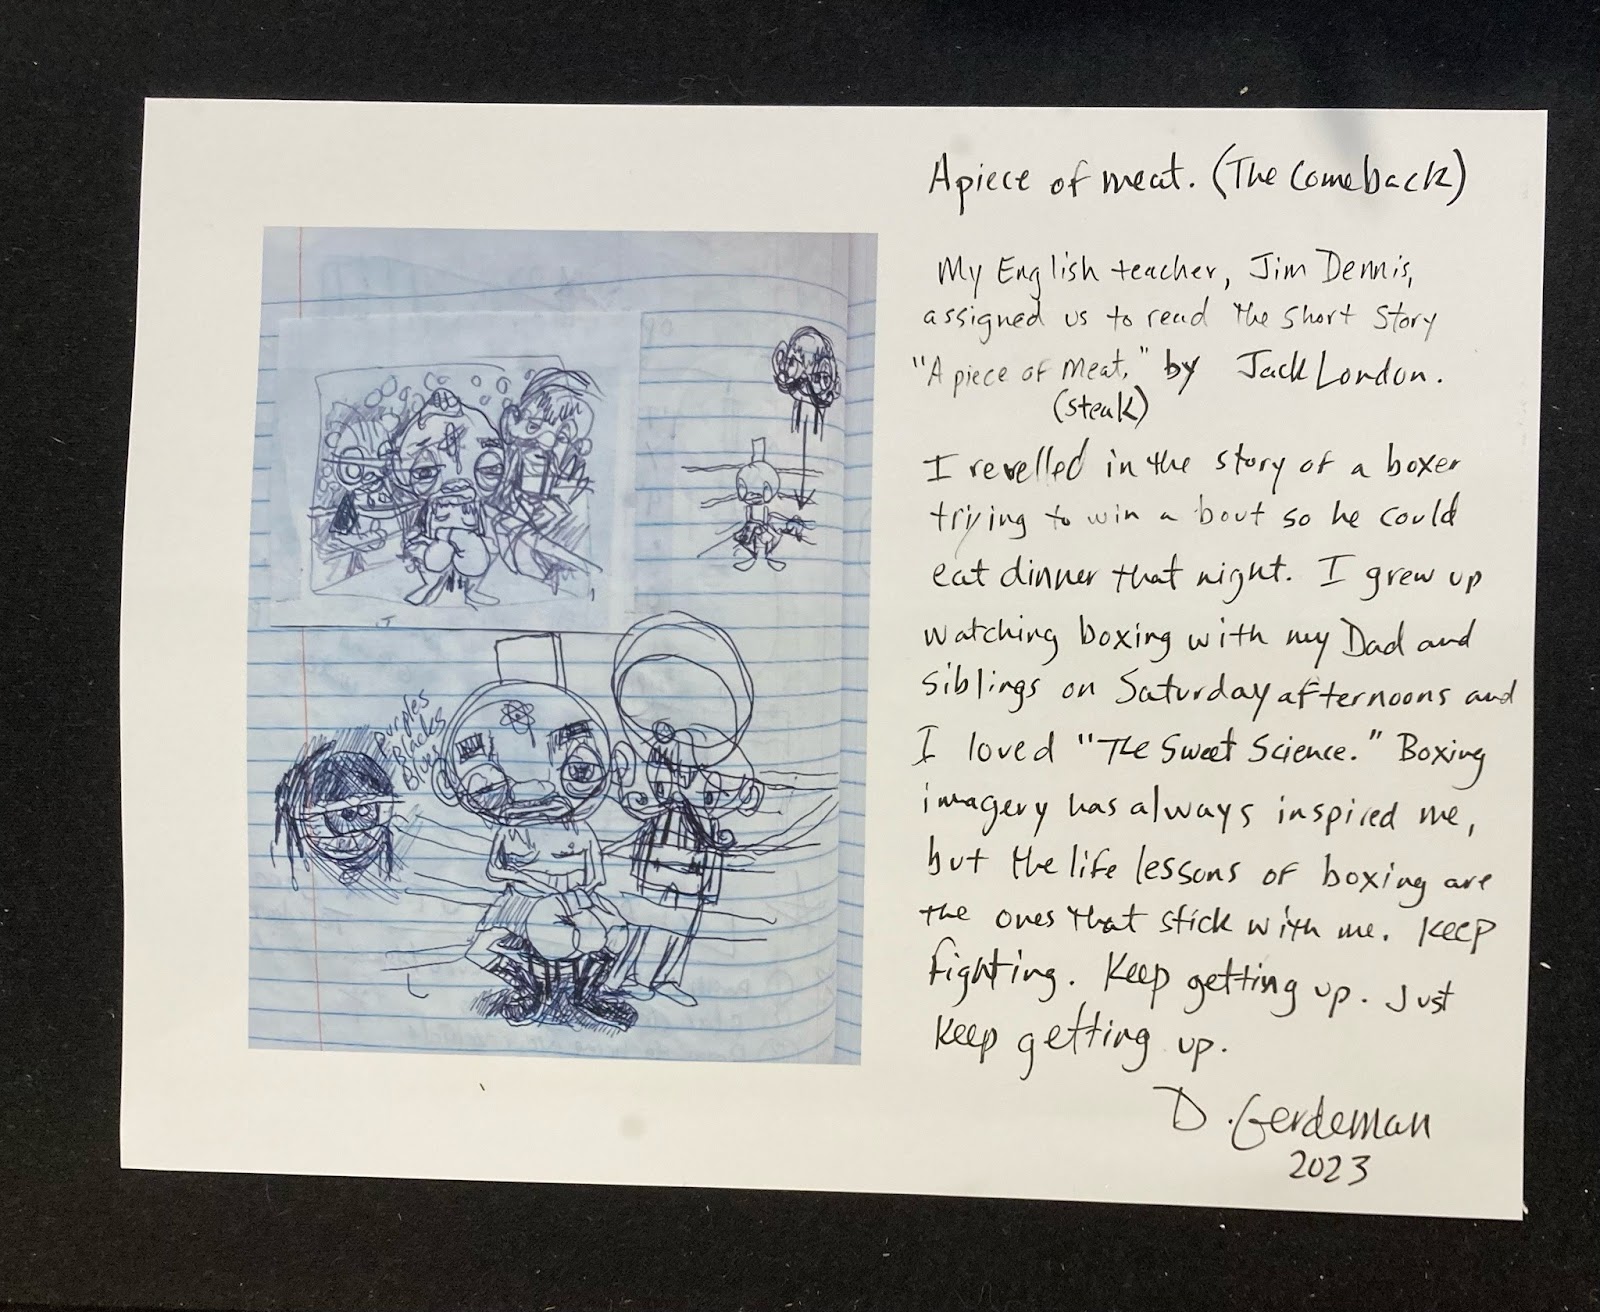 A piece of meat. (The Comeback)
My English teacher, Jim Dennis,
assigned us to read the short story
"A piece of meat," by Jack London.
(steak)
I revelled in the story of a boxer
trying to win a bout so he could
eat dinner that night. I grew up
watching boxing with my Dad and
siblings on Saturday afternoons and
I loved "The Sweet Science." Boxing
imagery has always inspired me,
but the life lessons of boxing are
the ones that stick with me. Keep
fighting. Keep getting up. Just
keep getting up.
D. Gerdeman
2023
purples
Blacks
Blues